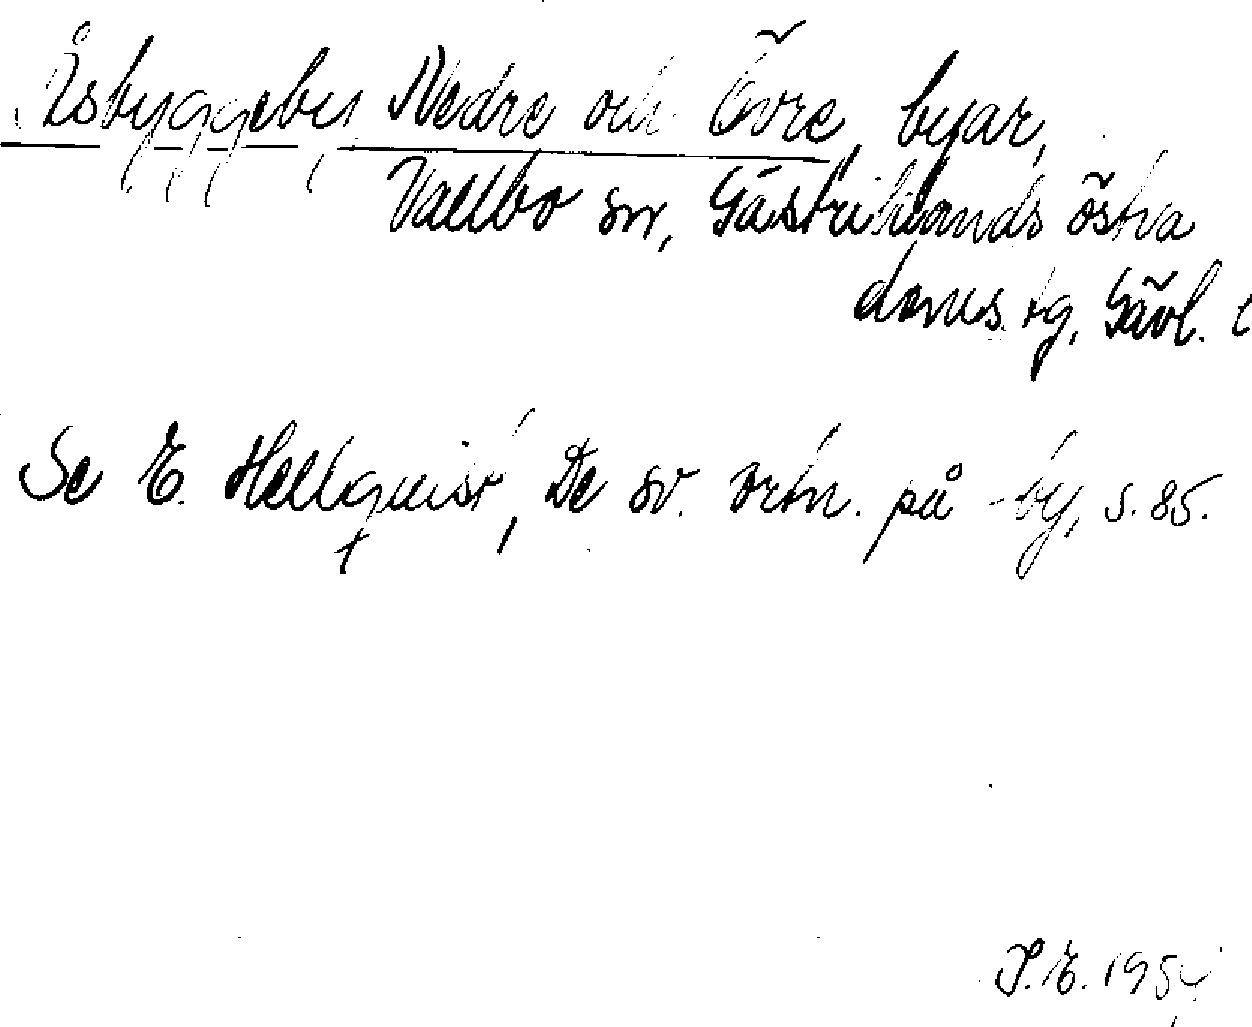 Åsbyggeby, Nedre och Övre, byar,
Vallbo sn, Gästriklands östra
doms. tg, Gävl. l
Se E. Hellquist, De sv. ortn. på -by, s. 85.
P.E. 1954